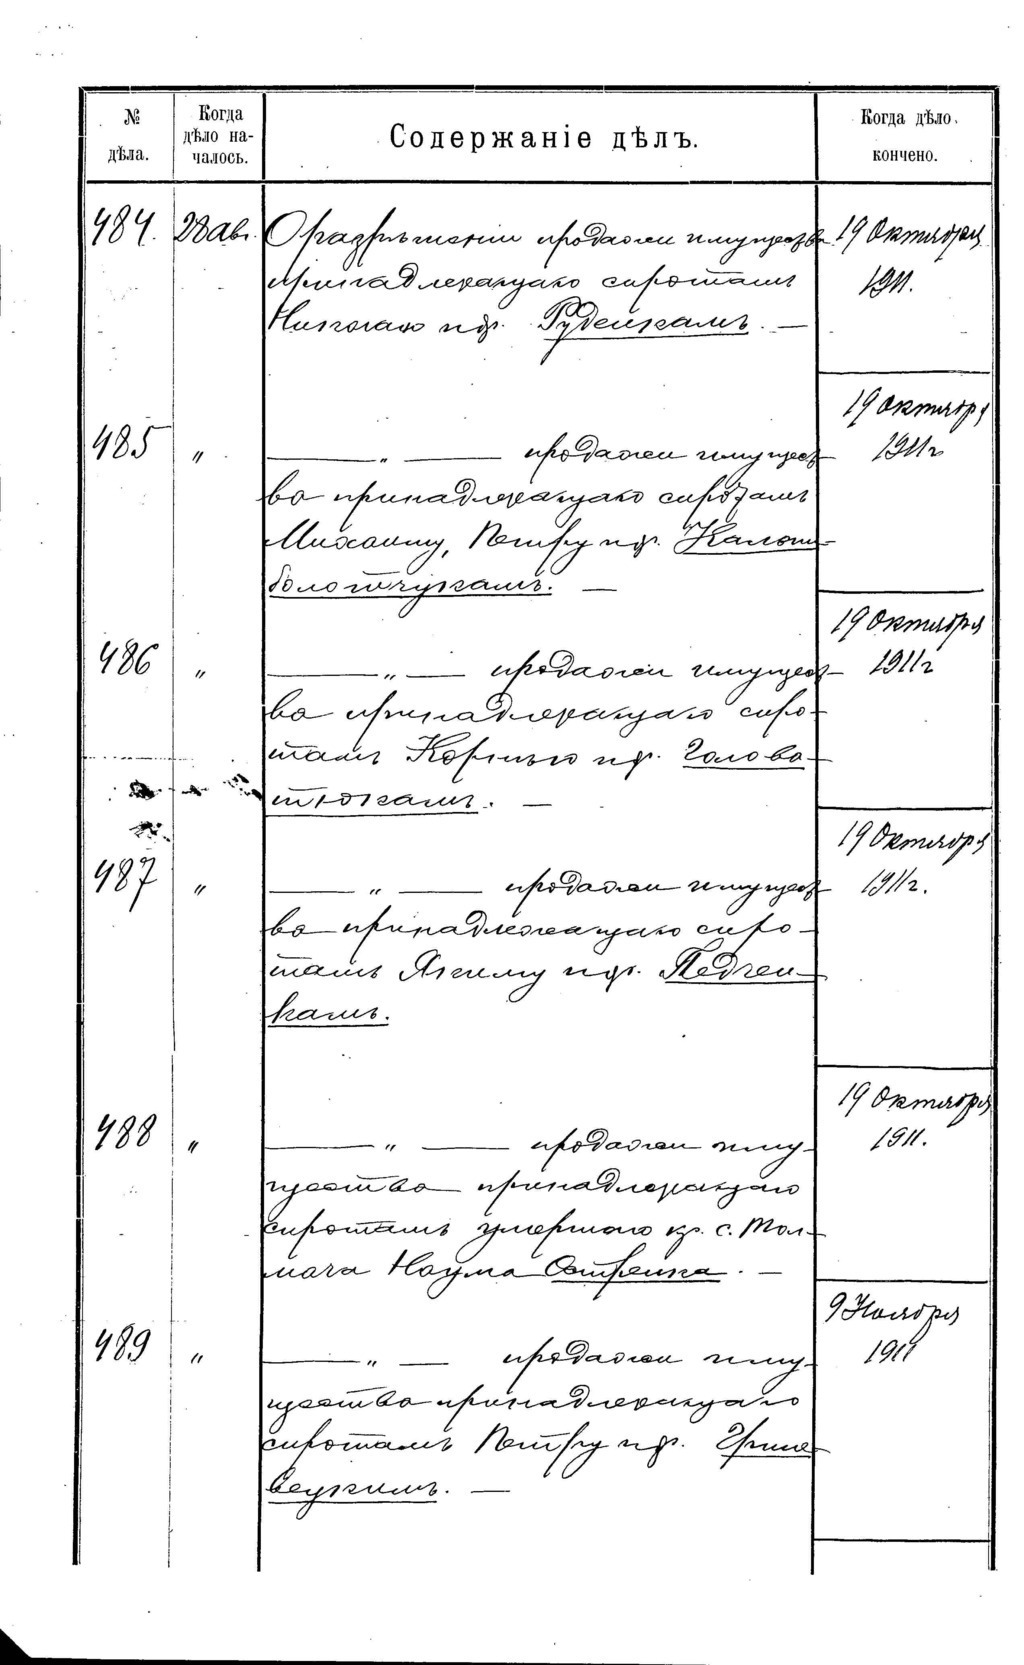 № дѣла.
Когда дѣло на-
чалось.
Содержаніе дѣлъ.
Когда дѣло
кончено.
484. 28 авг. О разрѣшеніи продажи имущества 19 Октября
принадлежащаго сиротамъ 1911.
Николаю и др. Руденкамъ. —
19 Октября
485 „ — „ — продажи имущест- 1911 г
ва принадлежащаго сиротамъ
Михаилу, Петру и др.
болотчукамъ. —
19 Октября
486 „ — „ — продажи имущест- 1911 г
ва принадлежащаго сиро-
тамъ Корнью и др. Голова-
тюкамъ. —
19 Октября
487 „ — „ — продажи имущест- 1911 г.
ва принадлежащаго сиро-
тамъ Якиму и др. Педчен-
камъ.
19 Октября
488 „ — „ — продажи иму- 1911.
щества принадлежащаго
сиротамъ умершаго кр. с. Тол-
мача Наума
9 Ноября
489 „ — „ — продажи иму- 1911
щества принадлежащаго
сиротамъ Петру и др. Грине-
вецкимъ. —